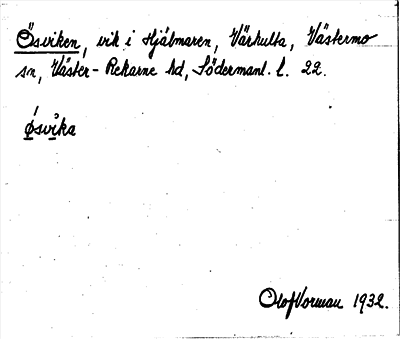 Ösviken, vik i Hjälmaren, Värhulta, Västermo
sn, Väster-Rekarne hd, Söderml. l. 22.
ǿsvi̇ka
Olof Vorman 1932.